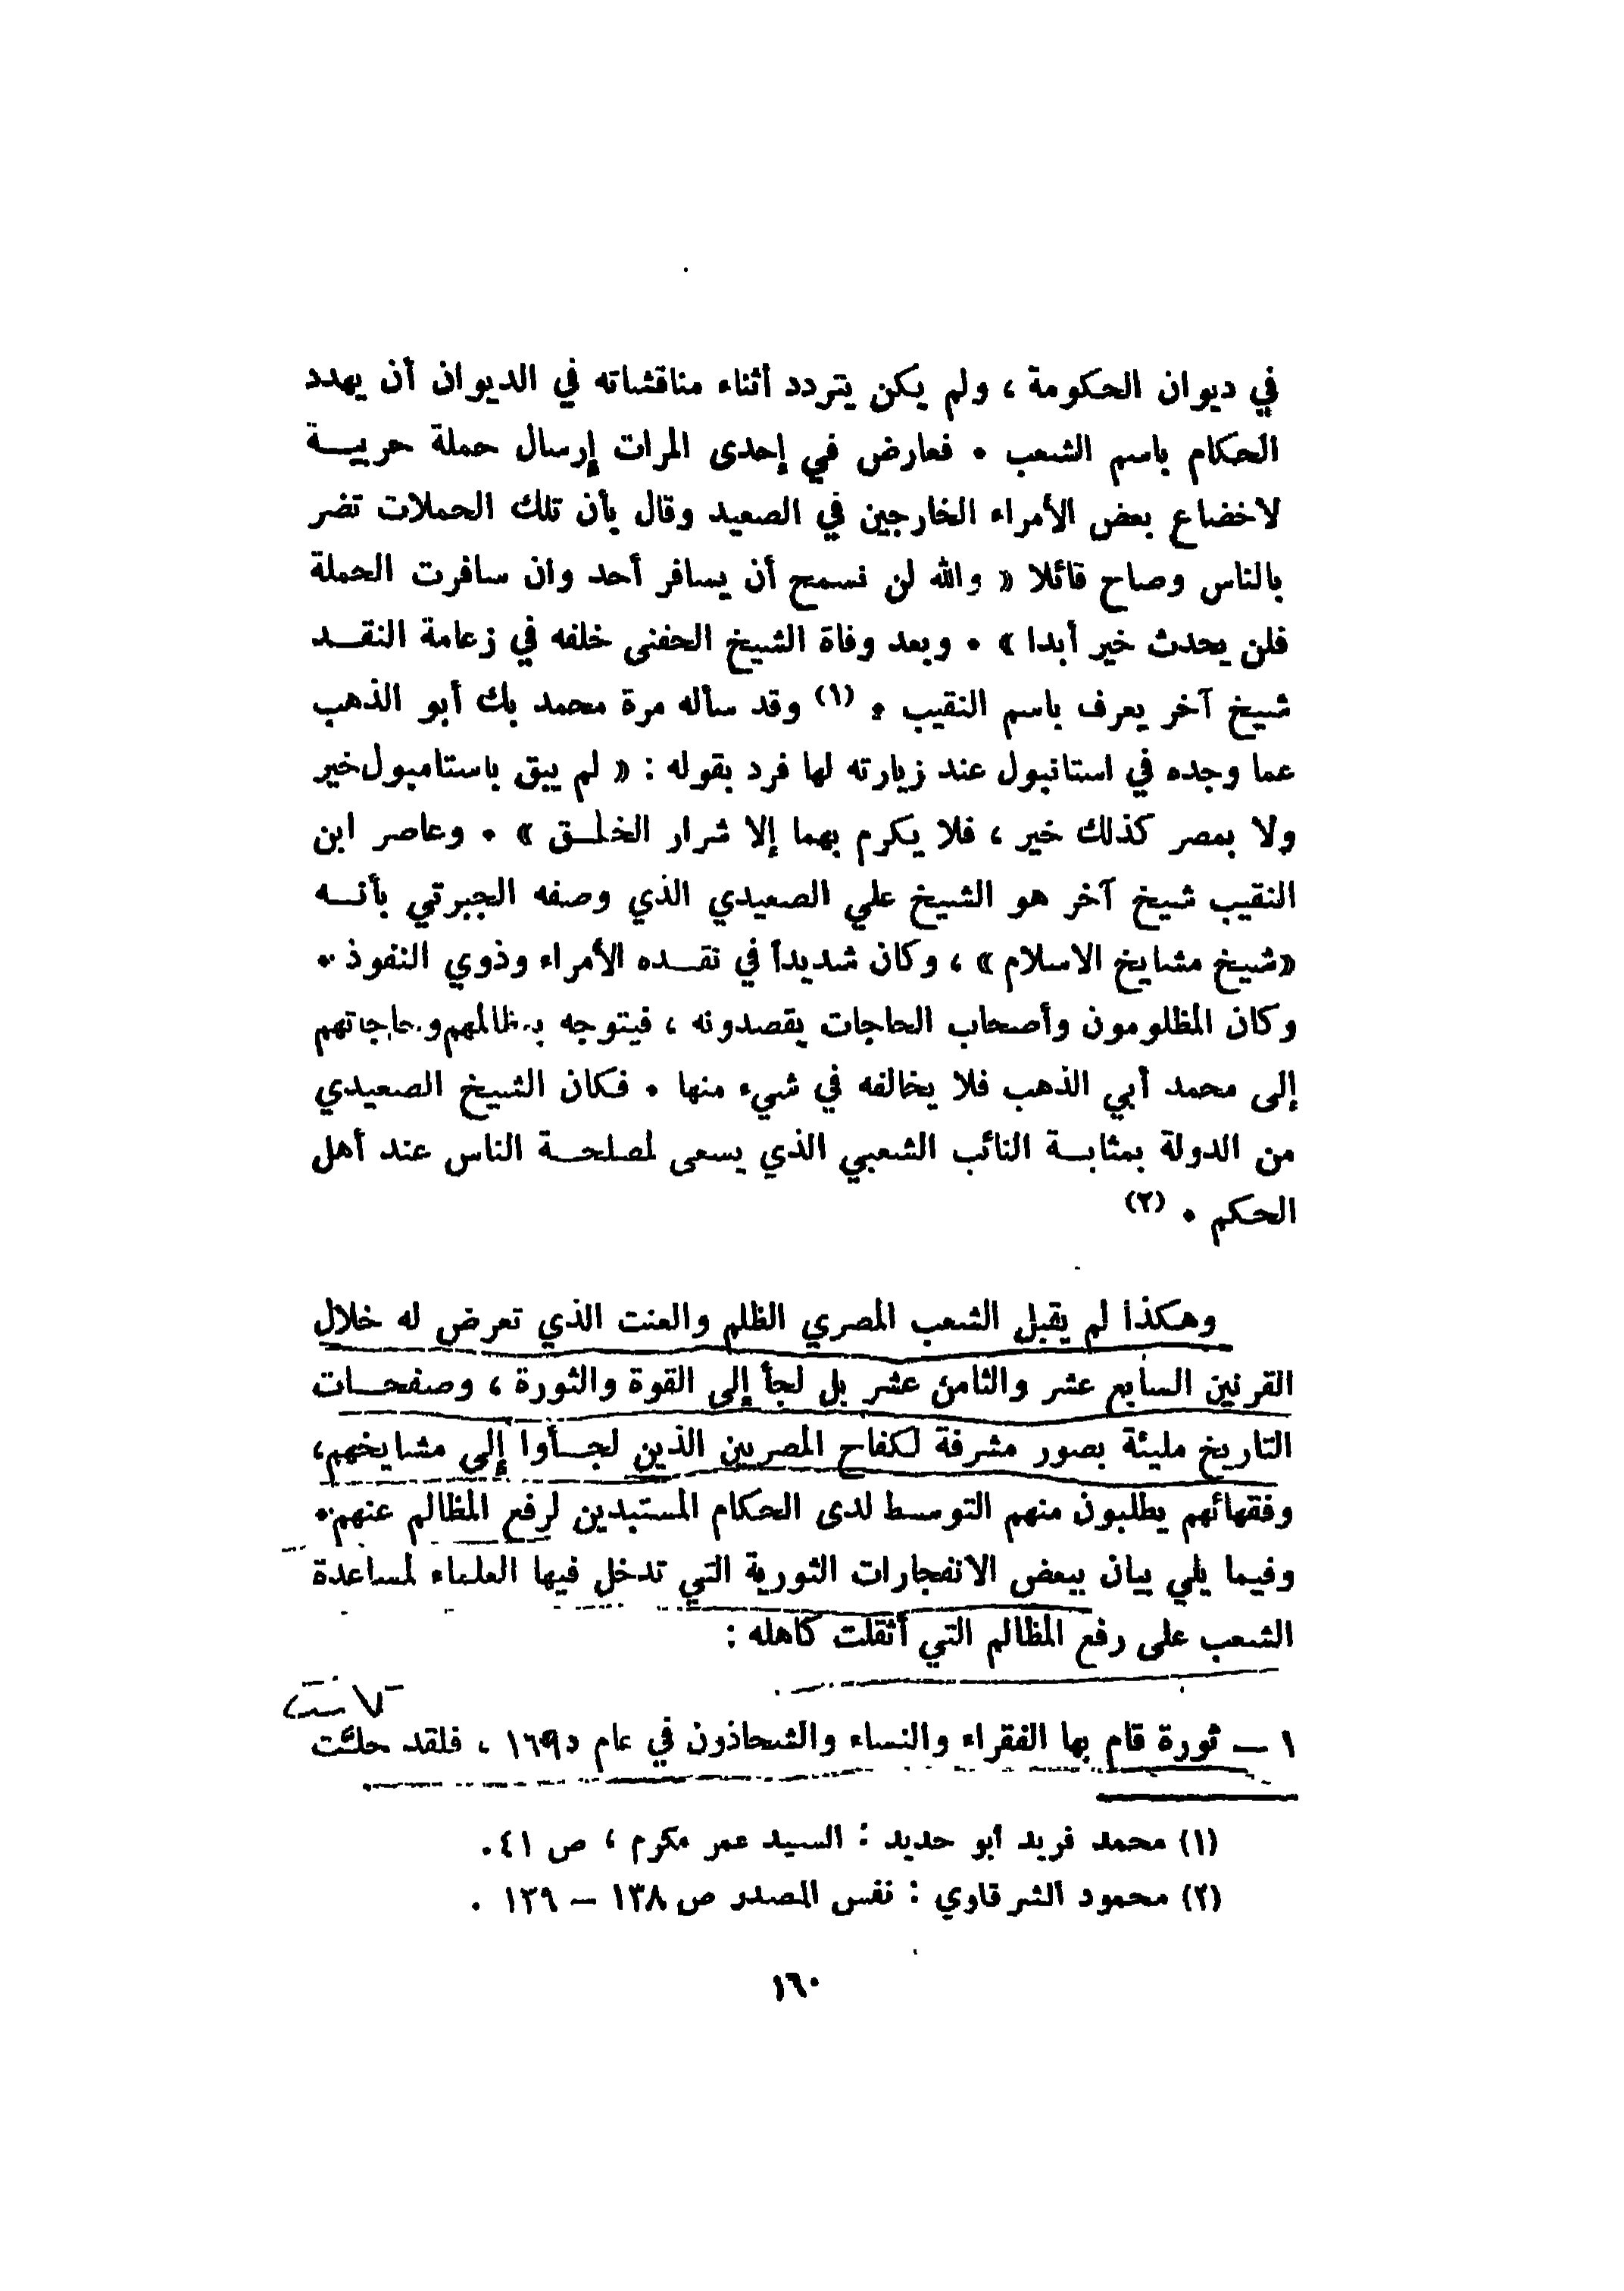 في ديوان الحكومة ، ولم يكن يتردد أثناء مناقشاته في الديوان أن يهدد
الحكام باسم الشعب . فعارض في إحدى المرات إرسال حملة حربيــة
لاخضاع بعض الأمراء الخارجين في الصعيد وقال بأن تلك الحملات تضر
بالناس وصاح قائلا « والله لن نسمح أن يسافر أحد وان سافرت الحملة
فلن يحدث خير أبدا » . وبعد وفاة الشيخ الحفنى خلفه في زعامة النقــد
شيخ آخر يعرف باسم النقيب . (١) وقد سأله مرة محمد بك أبو الذهب
عما وجده في استانبول عند زيارته لها فرد بقوله : « لم يبق باستامبول خير
ولا بمصر كذلك خير ، فلا يكرم بهما إلا شرار الخلــق » . وعاصر ابن
النقيب شيخ آخر هو الشيخ علي الصعيدي الذي وصفه الجبرتي بأنــه
«شيخ مشايخ الاسلام» ، وكان شديداً في نقــده الأمراء وذوي النفوذ .
وكان المظلومون وأصحاب الحاجات يقصدونه ، فيتوجه بمظالمهم وحاجاتهم
إلى محمد أبي الذهب فلا يخالفه في شيء منها . فكان الشيخ الصعيدي
من الدولة بمثابــة النائب الشعبي الذي يسعى لمصلحــة الناس عند أهل
الحكم . (٢)
وهكذا لم يقبل الشعب المصري الظلم والعنت الذي تعرض له خلال
القرنين السابع عشر والثامن عشر بل لجأ إلى القوة والثورة ، وصفحــات
التاريخ مليئة بصور مشرفة لكفاح المصريين الذين لجــأوا إلى مشايخهم،
وفقهائهم يطلبون منهم التوسط لدى الحكام المستبدين لرفع المظالم عنهم.
وفيما يلي بيان ببعض الانفجارات الثورية التي تدخل فيها العلماء لمساعدة
الشعب على رفع المظالم التي أثقلت كاهله :
١ – ثورة قام بها الفقراء والنساء والشحاذون في عام ، فلقد حلت
(١) محمد فريد أبو حديد : السيد عمر مكرم ، ص ٤١.
(٢) محمود الشرقاوي : نفس المصدر ص ١٣٨ – ١٣٩ .
١٦٠